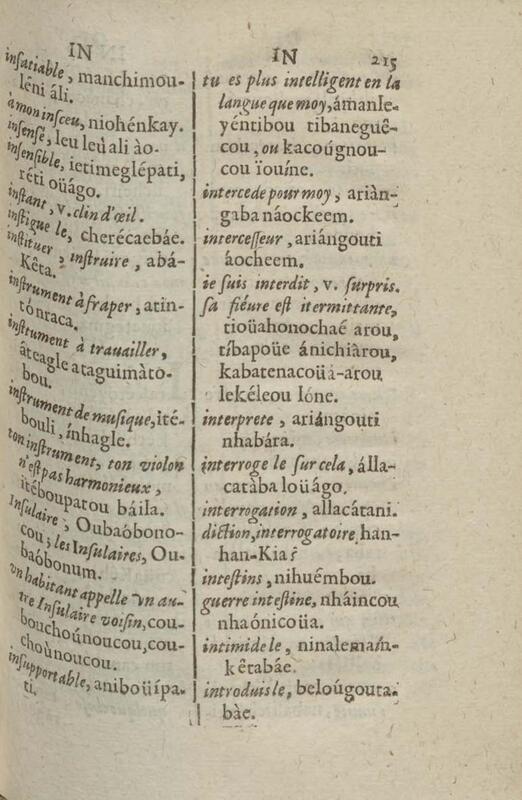 IN
insatiable, manchimou-
léni áli.
à mon insceu, niohénkay.
insensé, leu leùali ào.
insensible, ietimeglépati,
réti oüágo.
instant, v. clin d'œil.
instigue le, cherécaebáe.
instituer, instruire, abá-
Kêta.
instrument à fraper, atin-
tónraca.
instrument à trauailler,
âteagle ataguimàto-
bou.
instrument de musique, ité-
bouli, ínhagle.
ton instrument, ton violon
n'est pas harmonieux,
itébouparou báila.
Insulaire, Oubaóbono-
cou; les Insulaires, Ou-
baóbonum.
vn habitant appelle vn au-
tre Insulaire voisin, cou-
bouchoúnoucou, cou-
choùnoucou.
insupportable, aniboüípa-
ti.
IN 215
tu es plus intelligent en la
langue que moy, ámanle-
yéntibou tibaneguê-
cou, ou kacoúgnou-
cou ïouíne.
intercede pour moy, ariàn-
gaba náockeem.
intercesseur, ariángouti
áocheem.
ie suis interdit, v. surpris.
sa fiéure est itermittante,
tioüahonochaé arou,
tíbapoüe ánichiàrou,
kabatenacoüá-arou
lekéleou Ióne.
interprete, ariángouti
nhabára.
interroge le sur cela, álla-
catàba loüágo.
interrogation, allacátani.
diction, interrogatoire, han-
han-Kia?
intestins, nihuémbou.
guerre intestine, nháincou
nhaónicoüa.
intimide le, ninalemaín-
kêtabáe.
introduis le, beloúgouta-
bàe.